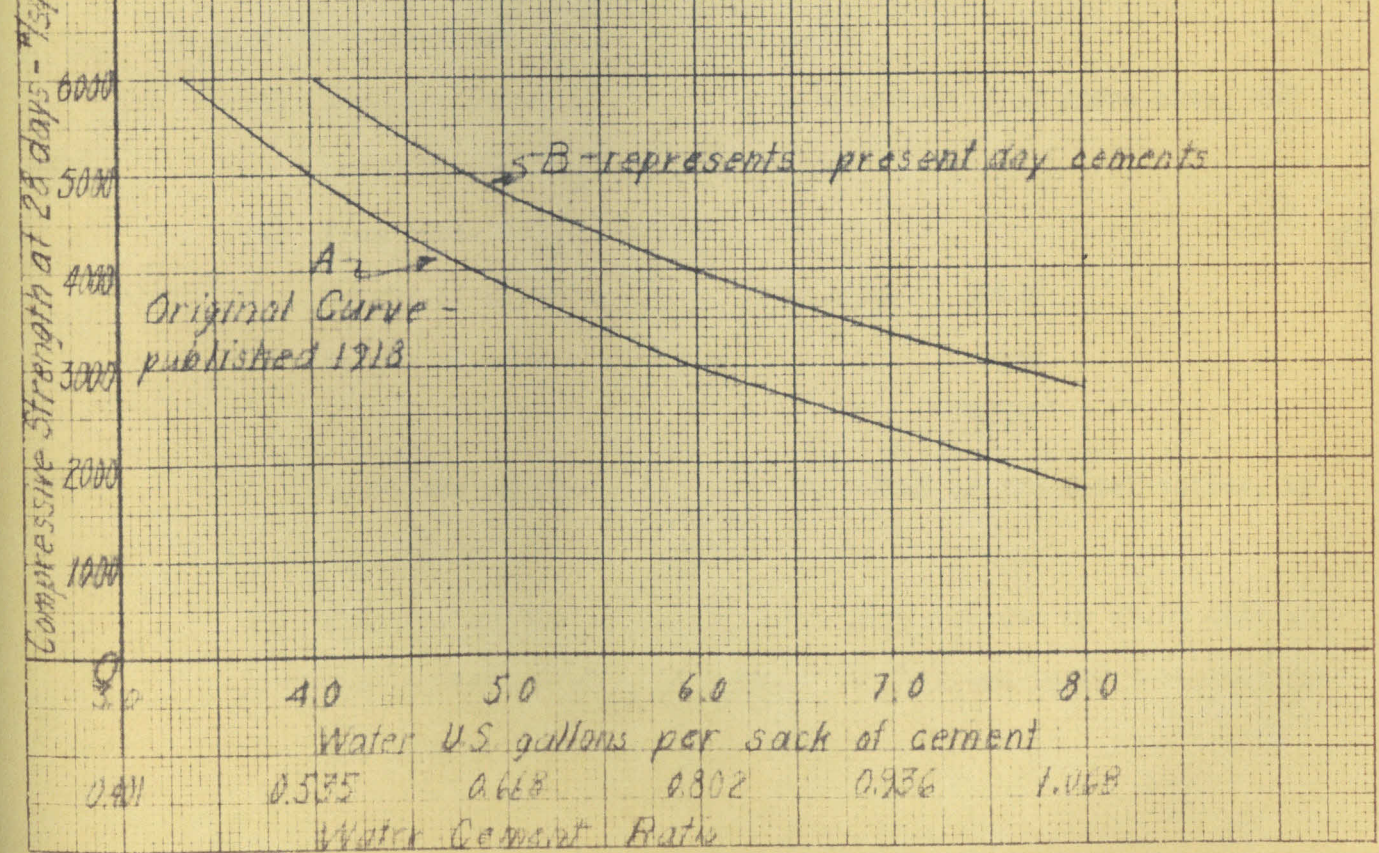 Compressive Strength at 28 days - #/sq
6000
5000
4000
3000
2000
1000
0
B - represents present day cements
A
Original Curve -
published 1918
3.0 4.0 5.0 6.0 7.0 8.0
Water US gallons per sack of cement
0.401 0.535 0.668 0.802 0.936 1.068
Water Cement Ratio